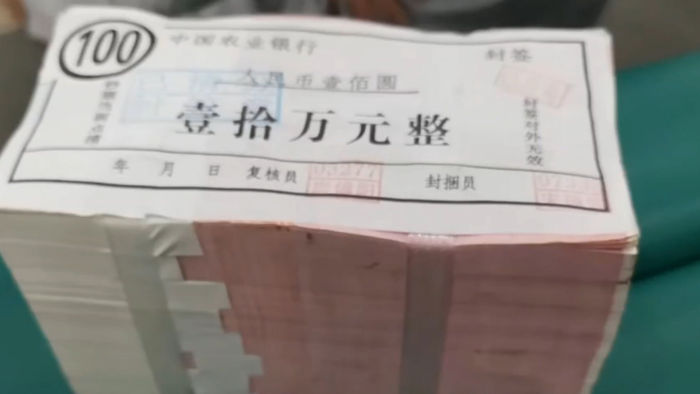 100
中国农业银行
封签
人民币壹佰圆
壹拾万元整
封签对外无效
年 月 日 复核员
封捆员